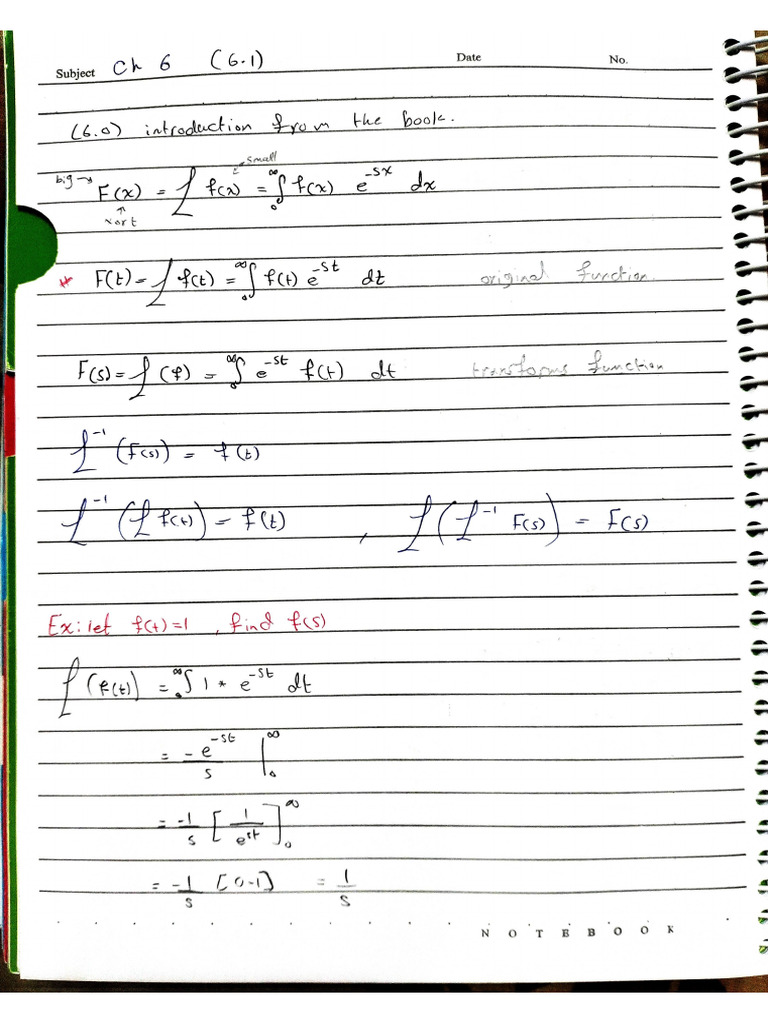 Subject Ch 6 (6.1) Date No.
(6.0) introduction from the book.
small
big → F(x) = ℒ f(x) = ∞∫0 f(x) e^-sx dx
↑
x or t
* F(t) = ℒ f(t) = ∞∫0 f(t) e^-st dt original function.
F(s) = ℒ (f) = ∞∫0 e^-st f(t) dt transforms function
ℒ^-1 (F(s)) = f(t)
ℒ^-1 (ℒ f(t)) = f(t) , ℒ (ℒ^-1 F(s)) = F(s)
Ex: let f(t) = 1 , find f(s)
ℒ (f(t)) = ∞∫0 1 * e^-st dt
= -e^-st / s |0^∞
= -1/s [1/e^st]0^∞
= -1/s [0-1] = 1/s
NOTEBOOK